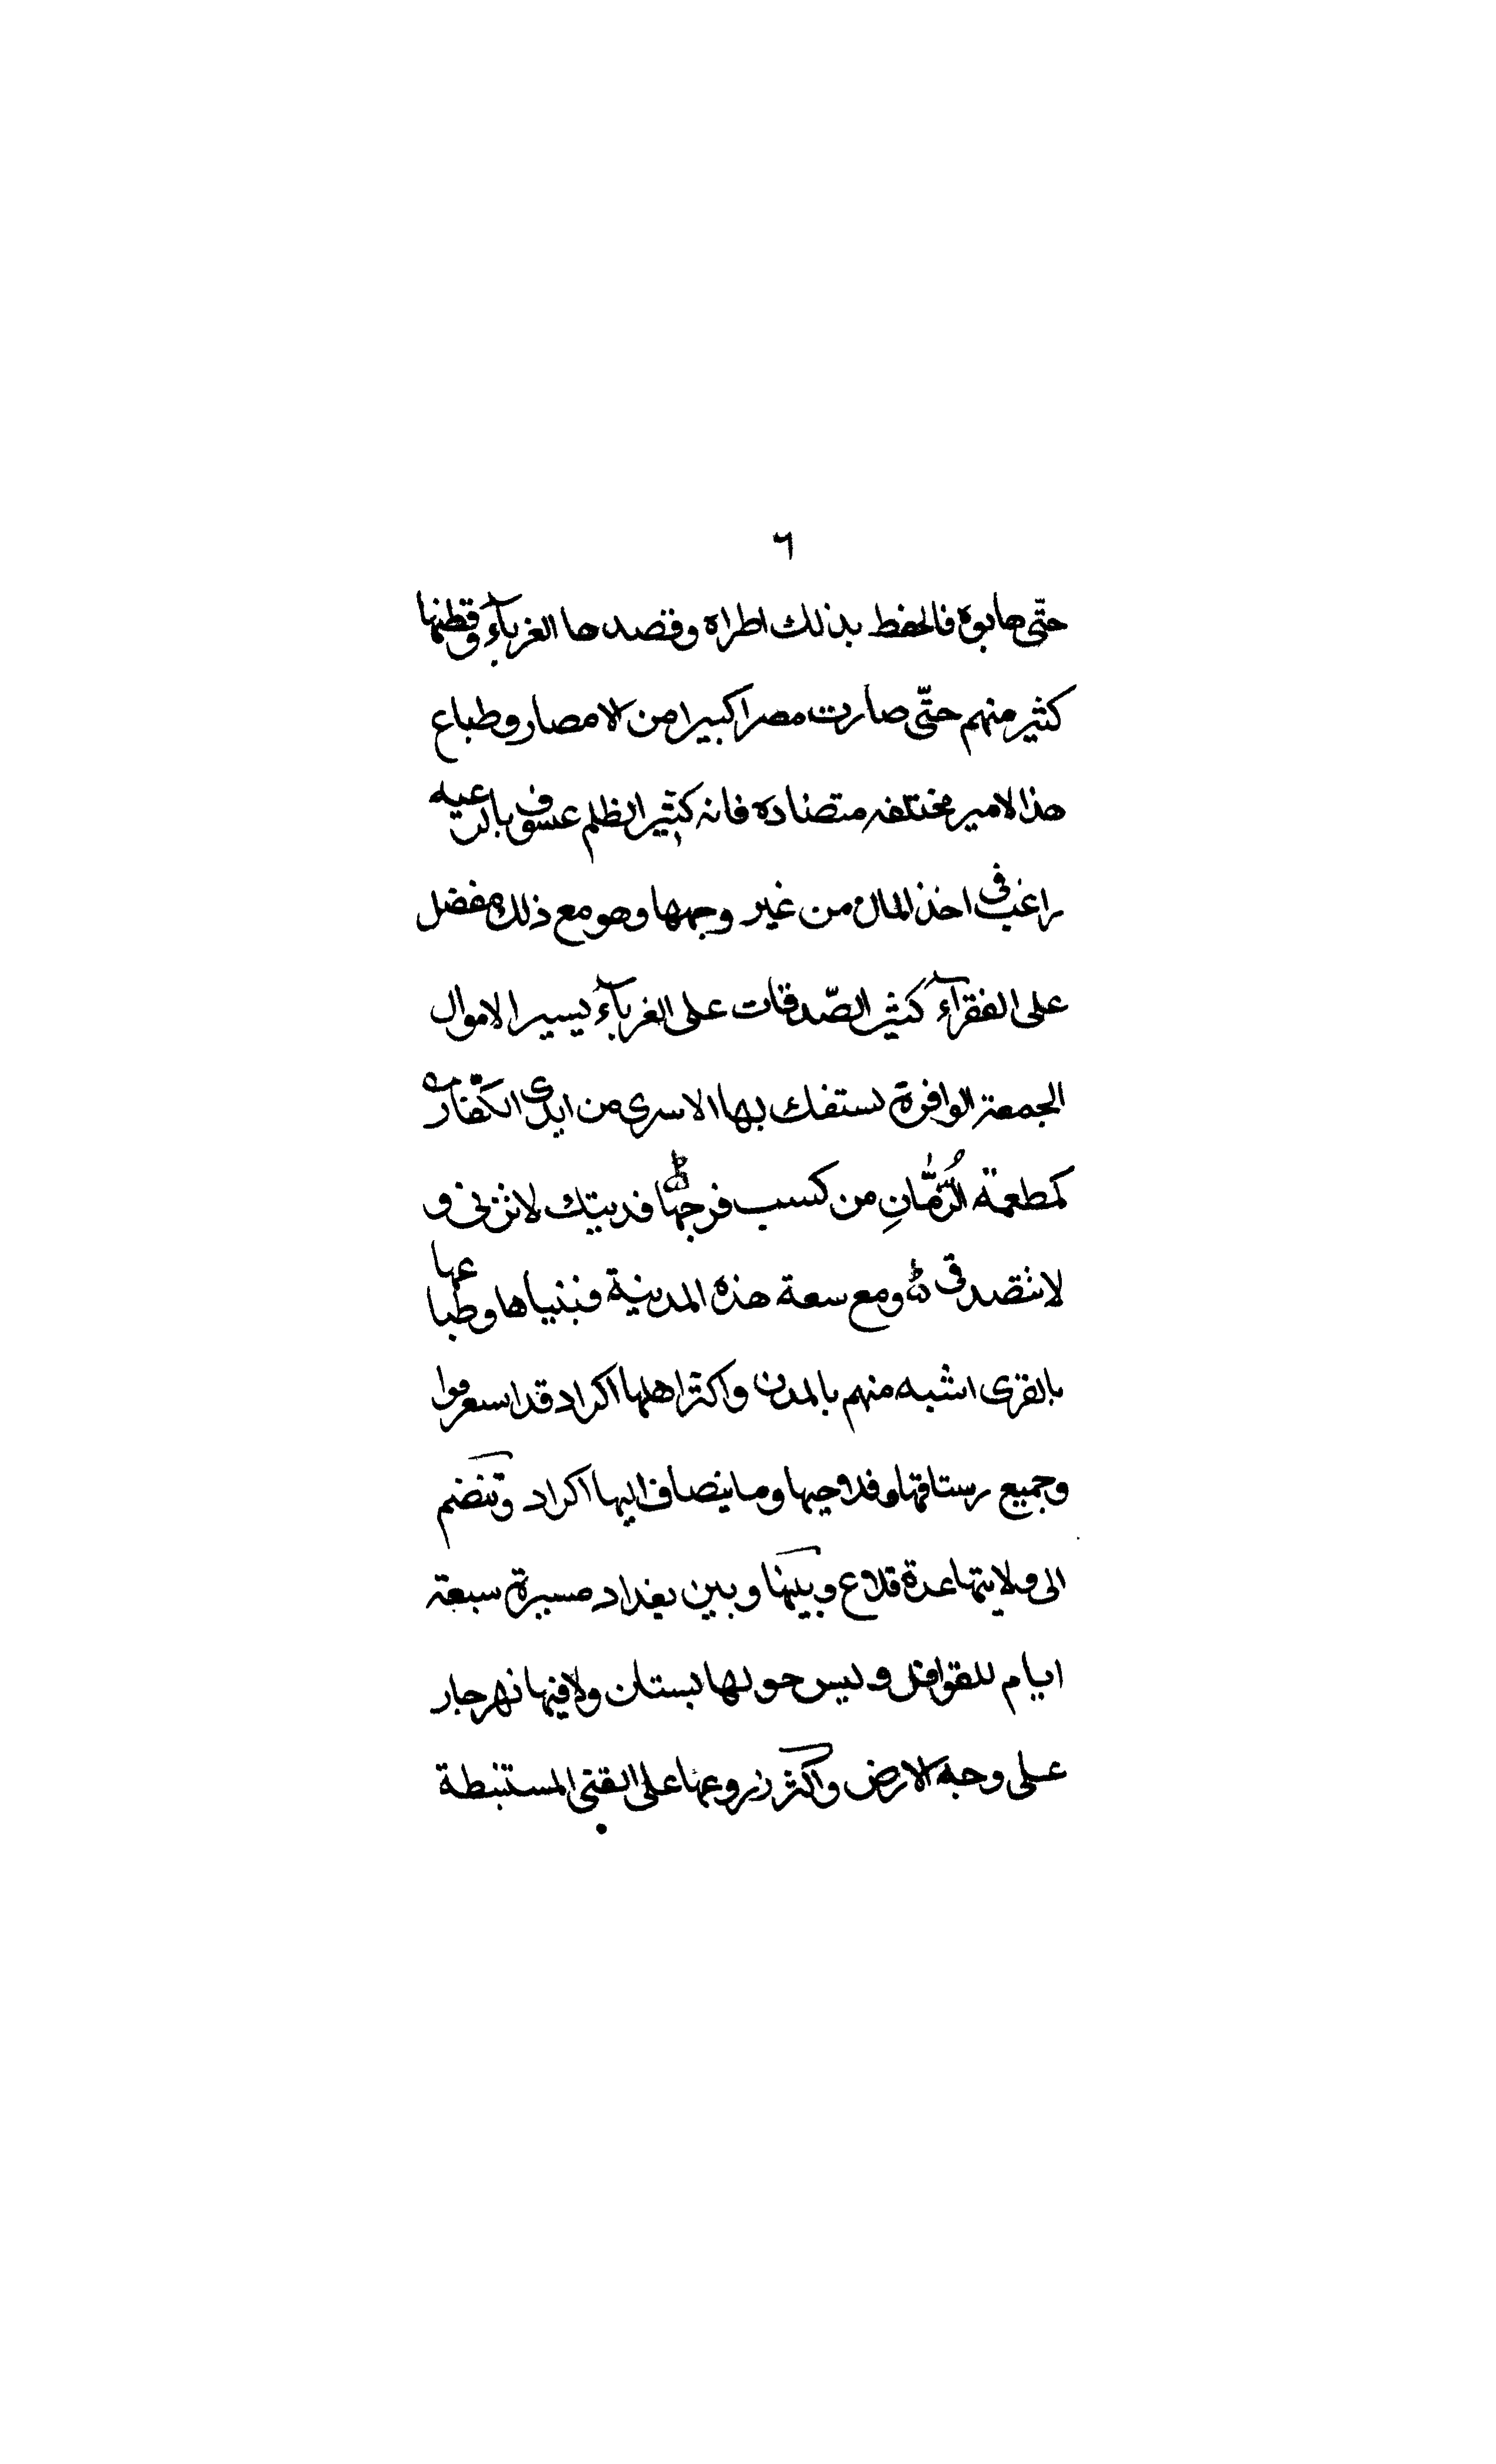 ٦
حتّى هابوه فالحفظ بذلك اطراه وقصدها الغربآء وقطنها
كثير منهم حتّى صارت مصرا كبيرا من الامصار وطباع
هذا الامير مختلفه متضاده فانه كثير الظلم عسوف بالرعيه
راغب فى اخذ المال من غير وجهها وهو مع ذلك مفضل
على الفقرآء كثير الصّدقات على الغربآء يسير الاموال
الجمعة الوافرة يستفك بها الاسرى من ايدى الكفار ه
كمطعمة الرُّمَّانِ من كسب فرجها فديتك لاتزنى و
لاتتصدقى ومع سعة هذه المدينة فبنياها وطباعها
بالقرى اشبه منهم بالمدن واكثر اهلها اكراد قد اسعرفوا
وجميع رستاقها وفلاحيها وما ينضاف اليها اكراد وتنضم
الى ولايتها عدة قلاع وبينها وبين بغداد مسيرة سبعة
ايام للقوافل وليس حولها بستان ولا فيها نهر جار
على وجه الارض واكثر زروعها على القنى المستنبطة